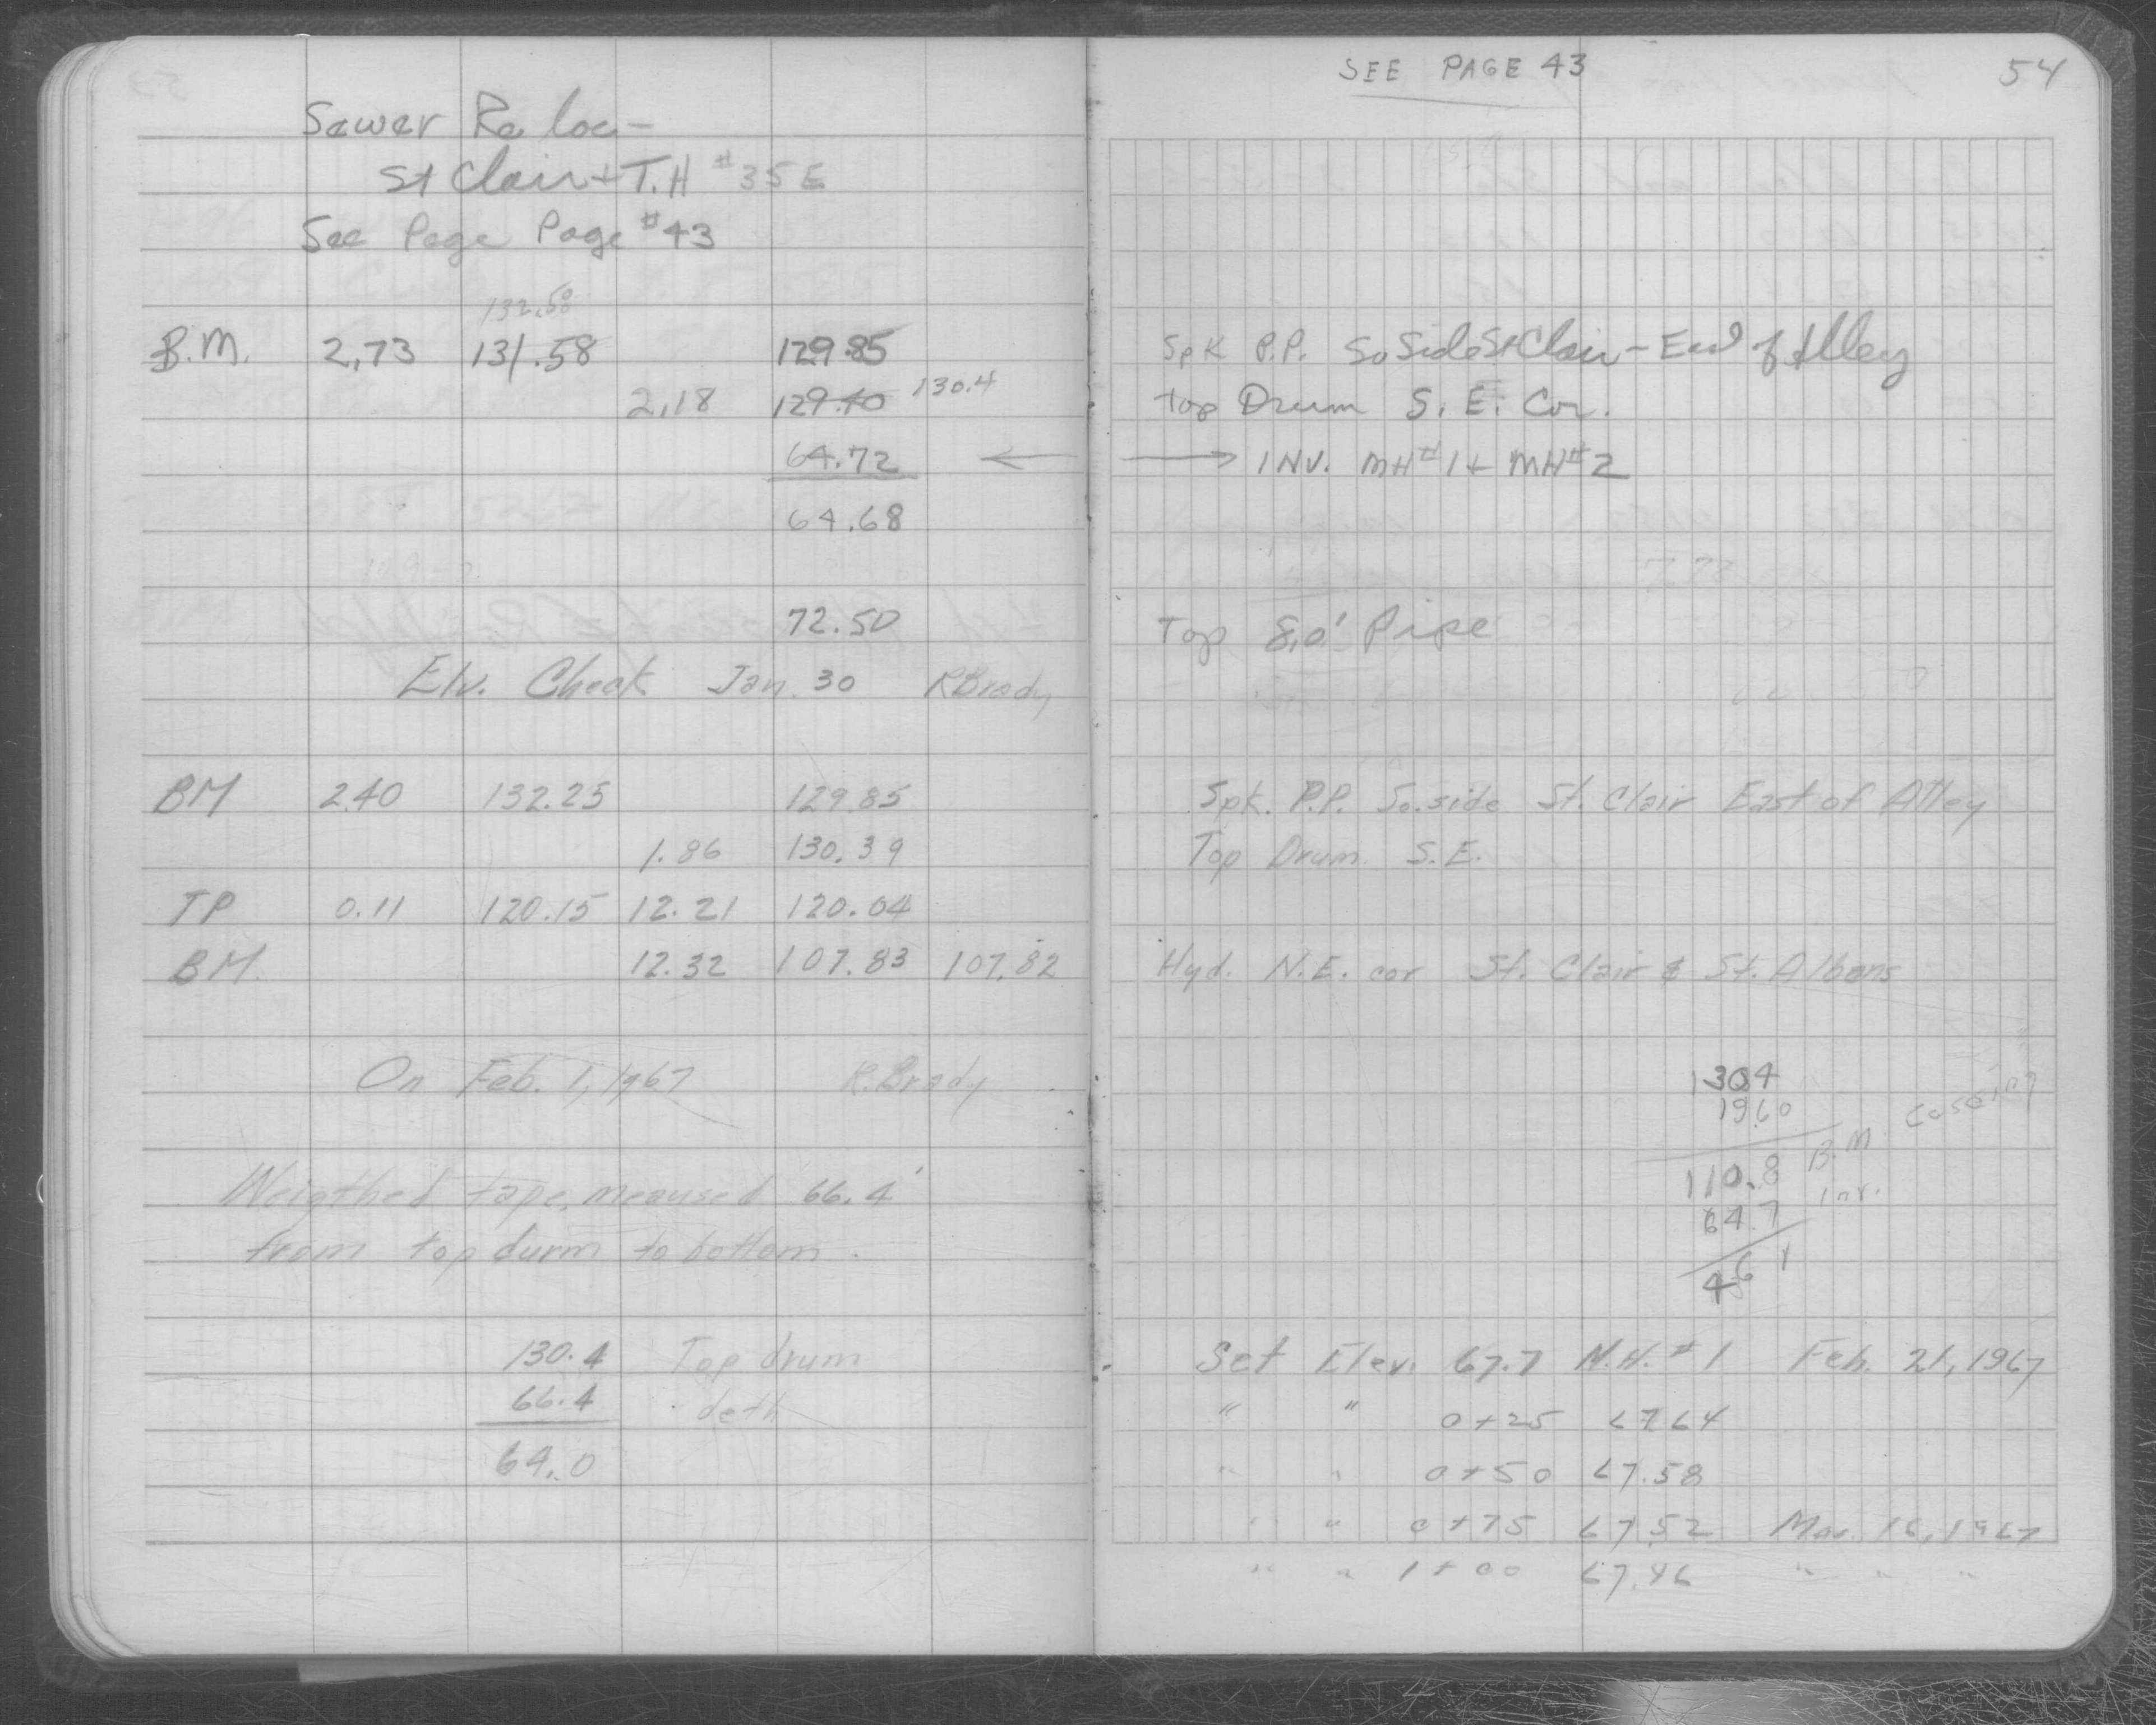 Sewer Reloc-
St Clair + T.H #35E
See Page Page #43
132.58
B.M. 2.73 131.58 129.85
2.18 129.40 130.4
64.72 ←
64.68
72.50
Elv. Check Jan. 30 R Brady
BM 2.40 132.25 129.85
1.86 130.39
TP 0.11 120.15 12.21 120.04
BM. 12.32 107.83 107.82
On Feb. 1, 1967 R. Brady
Weigthed tape, meaused 66.4'
from top durm to bottom.
130.4 Top drum
66.4 deth
64.0
SEE PAGE 43
54
Spk P.P. So Side St Clair - End of Alley
top Drum S. E. Cor.
→ INV. MH #1 + MH #2
Top 8.0' Pipe
Spk. P.P. So. side St. Clair East of Alley
Top Drum S.E.
Hyd. N.E. cor St. Clair & St. Albans
1304
19.60
110.8 B.M. Caseing
64.7 Inv.
46 1
Set Elev. 67.7 M.H. #1 Feb. 21, 1967
" " 0+25 67.64
" " 0+50 67.58
" " 0+75 67.52 Mar. 16, 1967
" " 1+00 67.46 " " "